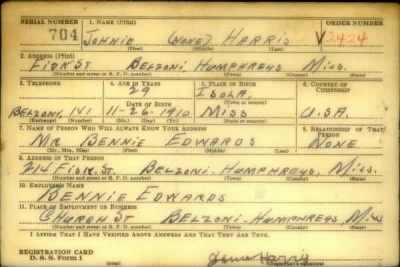 SERIAL NUMBER 1. NAME (Print) ORDER NUMBER
704 JOHNIE (NONE) HARRIS V2424
(First) (Middle) (Last)
2. ADDRESS (Print)
FISK ST BELZONI, HUMPHREYS MISS.
(Number and street or R. F. D. number) (Town) (County) (State)
3. TELEPHONE 4. AGE IN YEARS 5. PLACE OF BIRTH 6. COUNTRY OF CITIZENSHIP
29 ISOLA
DATE OF BIRTH (Town or county)
BELZONI, 141 11-26-1910 MISS U.S.A.
(Exchange) (Number) (Mo.) (Day) (Yr.) (State or country)
7. NAME OF PERSON WHO WILL ALWAYS KNOW YOUR ADDRESS 8. RELATIONSHIP OF THAT PERSON
MR BENNIE EDWARDS NONE
(Mr., Mrs., Miss) (First) (Middle) (Last)
9. ADDRESS OF THAT PERSON
214 FISK. ST. BELZONI. HUMPHREYS, MISS.
(Number and street or R. F. D. number) (Town) (County) (State)
10. EMPLOYER'S NAME
BENNIE EDWARDS
11. PLACE OF EMPLOYMENT OR BUSINESS
CHURCH ST BELZONI-HUMPHREYS, MISS
(Number and street or R. F. D. number) (Town) (County) (State)
I AFFIRM THAT I HAVE VERIFIED ABOVE ANSWERS AND THAT THEY ARE TRUE.
REGISTRATION CARD
D. S. S. Form 1